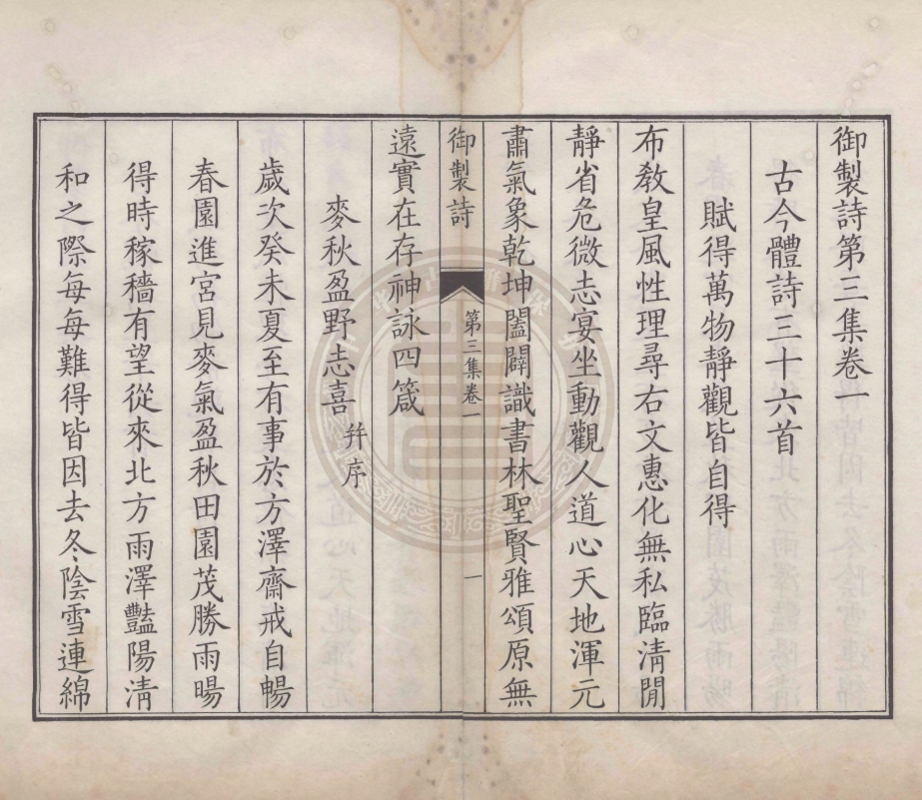 御製詩第三集卷一
古今體詩三十六首
賦得萬物靜觀皆自得
布教皇風性理尋右文惠化無私臨淸閒
靜省危微志宴坐動觀人道心天地渾元
肅氣象乾坤闔闢識書林聖賢雅頌原無
御製詩 第三集卷一 一
遠實在存神詠四箴
麥秋盈野志喜 幷序
歲次癸未夏至有事於方澤齋戒自暢
春園進宮見麥氣盈秋田園茂勝雨暘
得時稼穡有望從來北方雨澤豔陽淸
和之際每每難得皆因去冬陰雪連綿